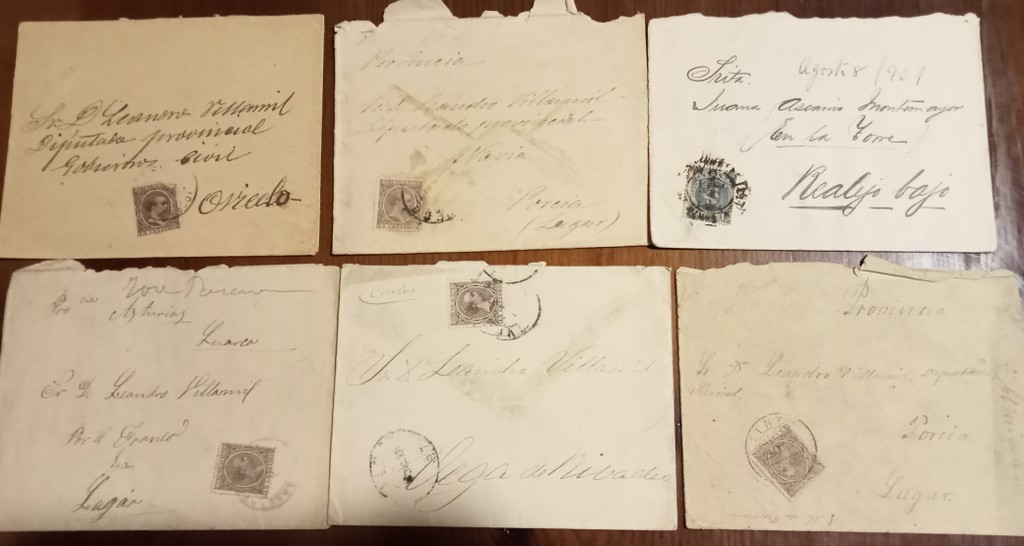 Sr D Leandro Villamil
Diputado provincial
Gobierno Civil
Oviedo
Provincia
Sr D Leandro Villamil
Diputado provincial
Navia
Porcia
(Lagar)
Agosto 8/901
Srita.
Juana Ascanio Montemayor
En la Torre
Realejo bajo
Asturias
Luarca
Sr D. Leandro Villamil
Por el Franco
Lagar
Carlos
Sr D. Leandro Villamil
Vega de Rivadeo
Provincia
Sr Dn Leandro Villamil, Diputado
Porcia
Lagar.